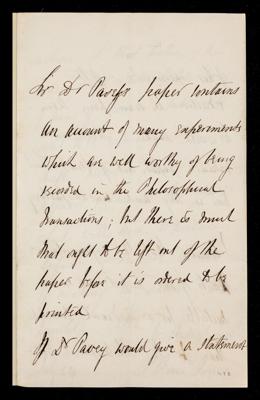 Dr Pavey's paper contains
an account of many experiments
which are well worthy of being
recorded in the Philosophical
Transactions; but there is much
that ought to be left out of the
paper before it is ordered to be
printed
If Dr Pavey would give a statement